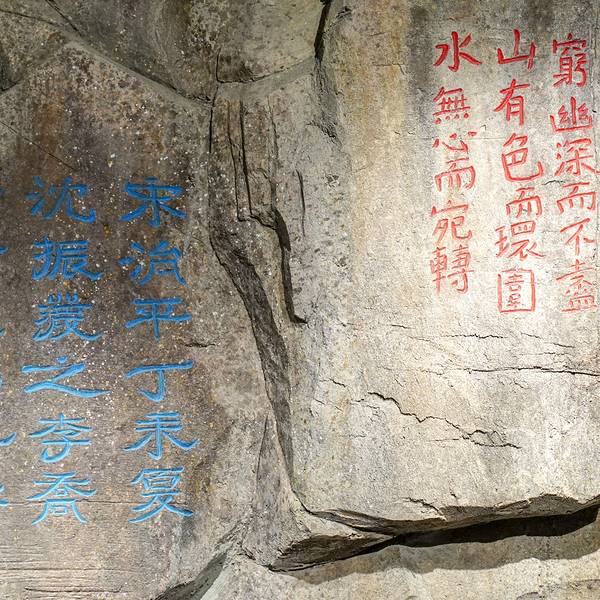 窮幽深而不盡
山有色而環圍
水無心而宛轉
宋治平丁未夏
沈振發之李喬